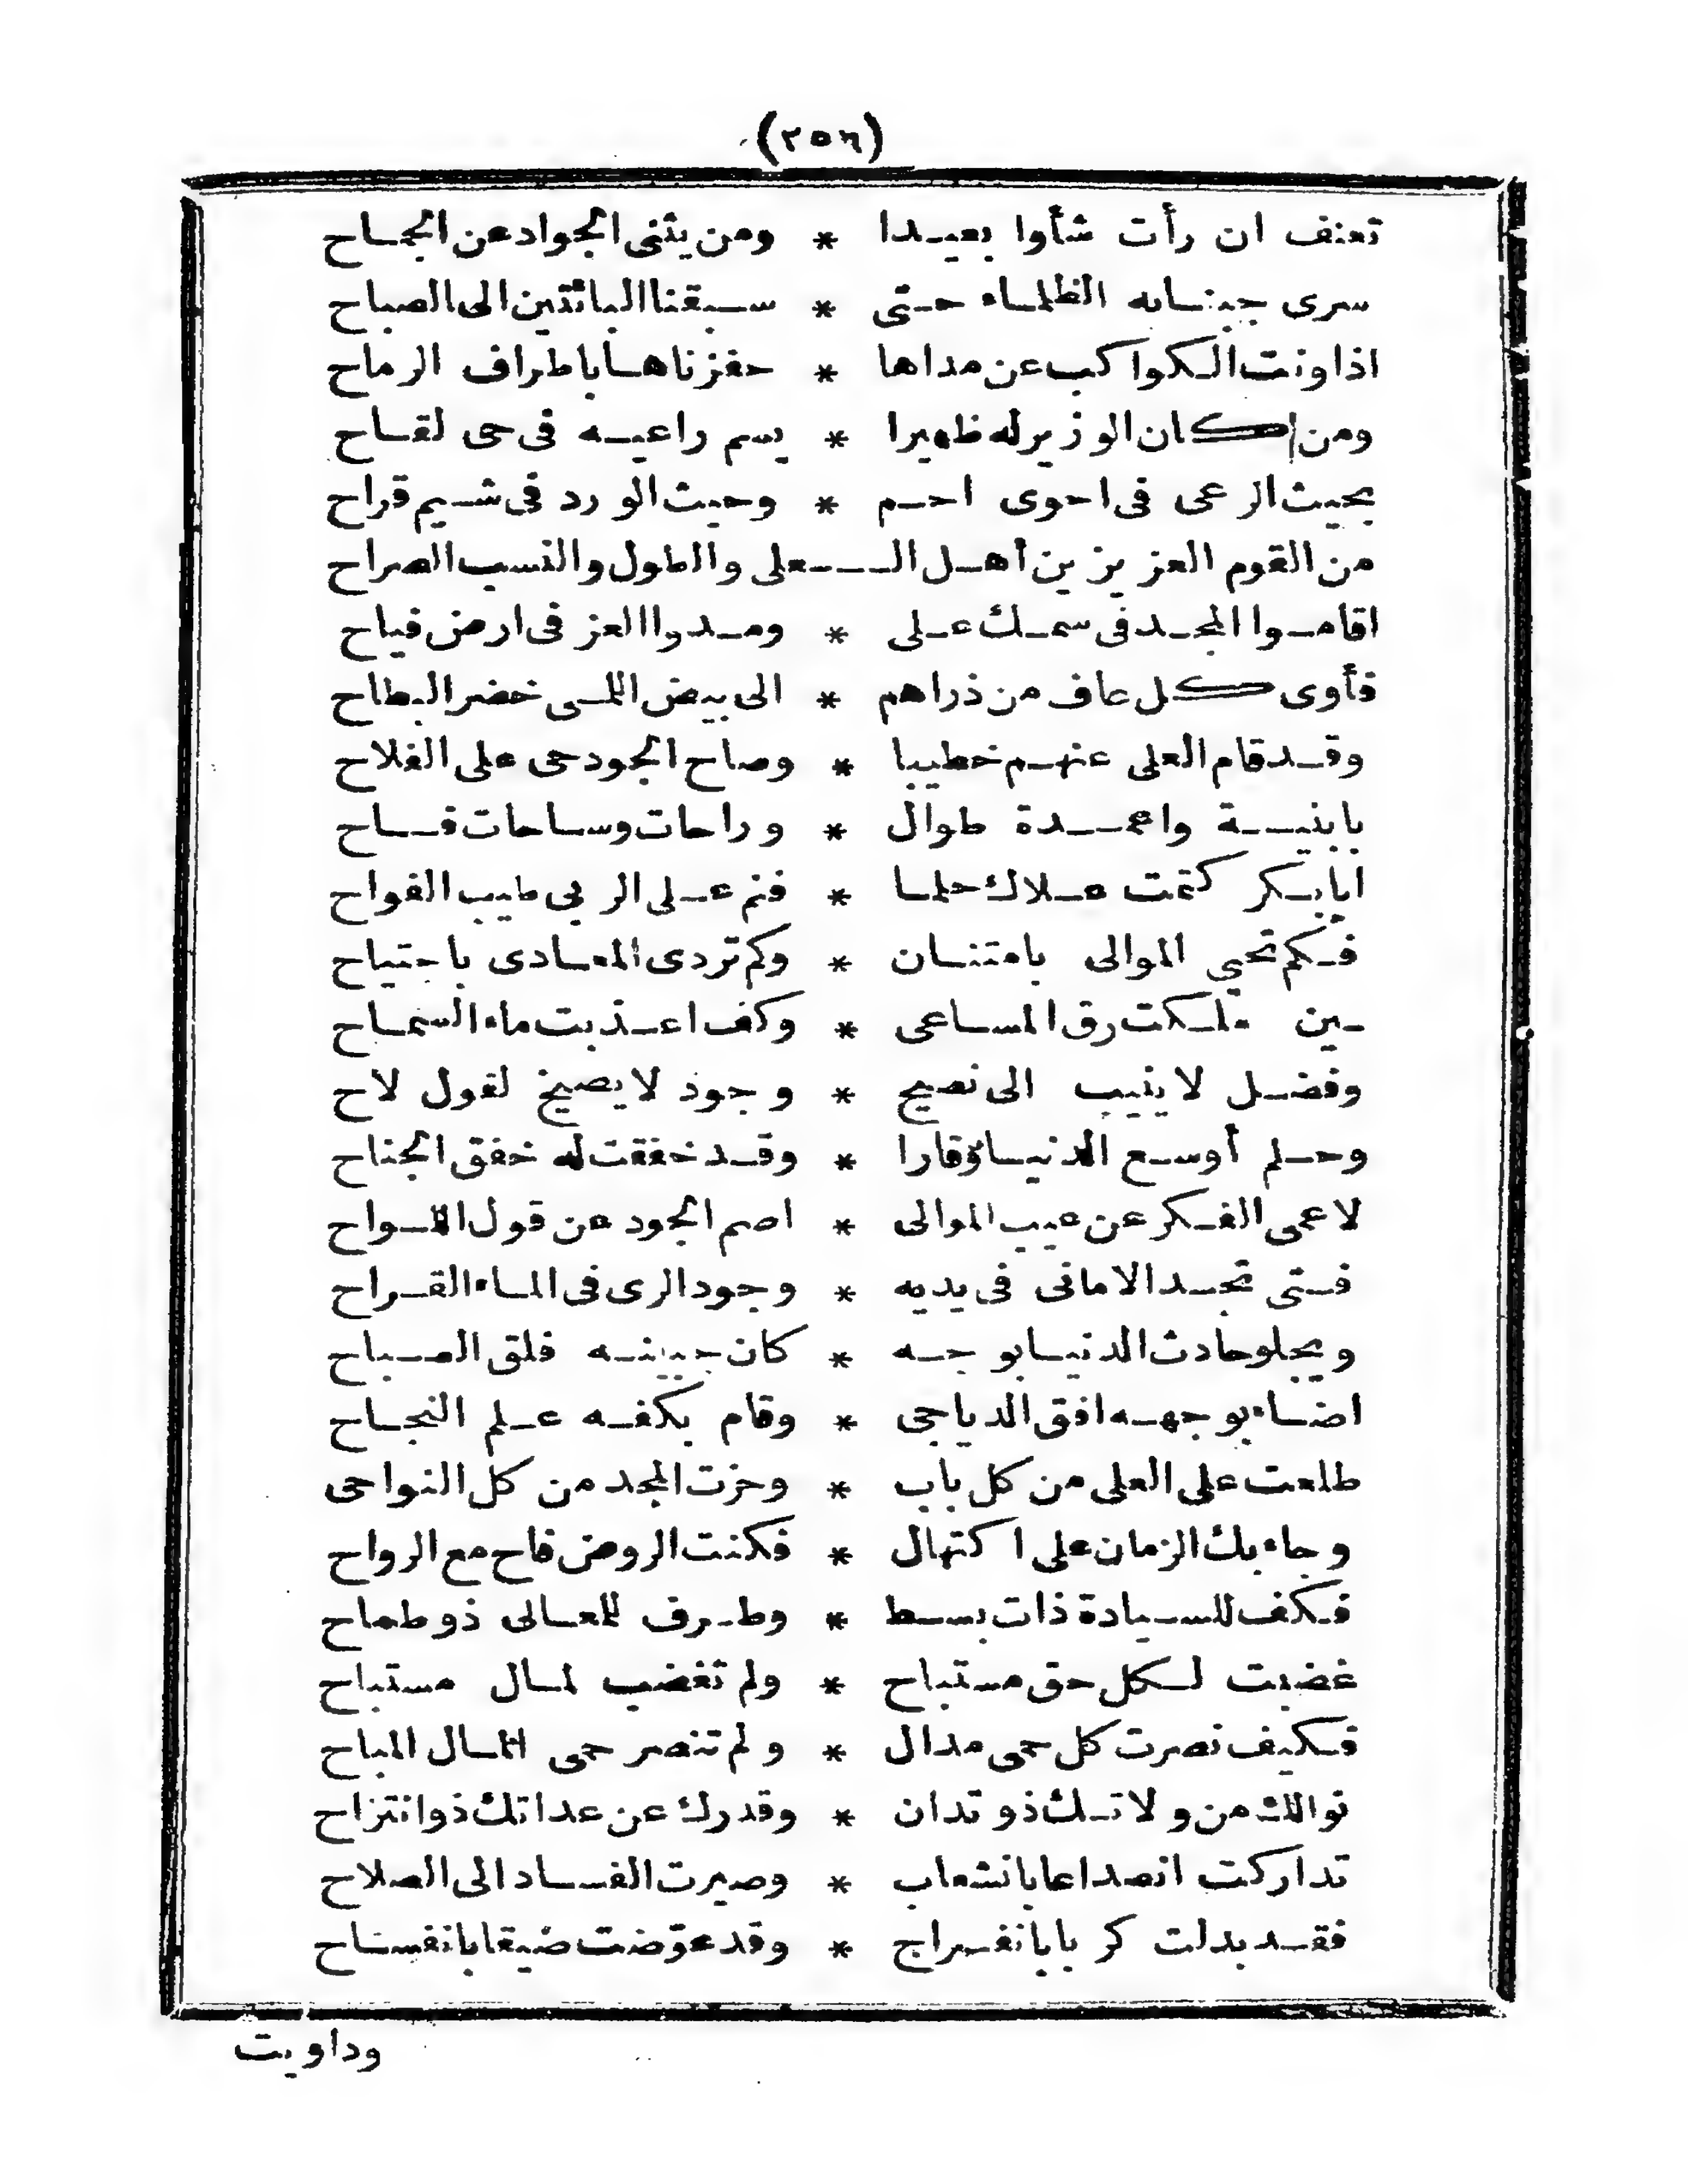 (٢٥٦)
تعنف ان رأت شأوا بعيدا * ومن يثنى الجواد عن الجماح
سرى جبنابه الظلماء حتى * سبقنا البائتين الى الصباح
اذا ونت الكواكب عن مداها * حفزناها باطراف الرماح
ومن كان الوزير له ظهيرا * يسم راعيه فى حى لقاح
بحيث الرعى فى احوى احم * وحيث الورد فى شيم قراح
من القوم العزيزين أهل العلى والطول والنسب الصراح
اقاموا المجد فى سمك على * ومدوا العز فى ارض فياح
فأوى كل عاف من ذراهم * الى بيض اللهى خضر البطاح
وقد قام العلى عنهم خطيبا * وصاح الجود حى على الفلاح
بابنية واعمدة طوال * وراحات وساحات فساح
ابابكر كتمت علاك حلما * فنم على الربى طيب الفواح
فكم تحيى الموالى بامتنان * وكم تردى المعادى باجتياح
ين ملكت رق المساعى * وكف اعذبت ماء السماح
وفضل لا ينيب الى نصيح * وجود لا يصيخ لقول لاح
وحلم أوسع الدنيا وقارا * وقد خفقت له خفق الجناح
لاعمى الفكر عن عيب الموالى * اصم الجود عن قول اللواح
فتى تجد الامانى فى يديه * وجود الرى فى الماء القراح
ويجلو حادث الدنيا بوجه * كان جبينه فلق الصباح
اضاء بوجهه افق الدياجى * وقام بكفه علم النجاح
طلعت على العلى من كل باب * وحزت المجد من كل النواحى
وجاء بك الزمان على اكتهال * فكنت الروض فاح مع الرواح
فكف للسيادة ذات بسط * وطرف للمعالى ذو طماح
غضبت لكل حق مستباح * ولم تغضب لمال مستباح
فكيف نصرت كل حمى مدال * ولم تنصر حمى المال المباح
نوالك من ولاتك ذو تدان * وقدرك عن عداتك ذو انتزاح
تداركت انصداعا بانشعاب * وصيرت الفساد الى الصلاح
فقد بدلت كربا بانفراج * وقد عوّضت ضيقا بانفساح
وداويت